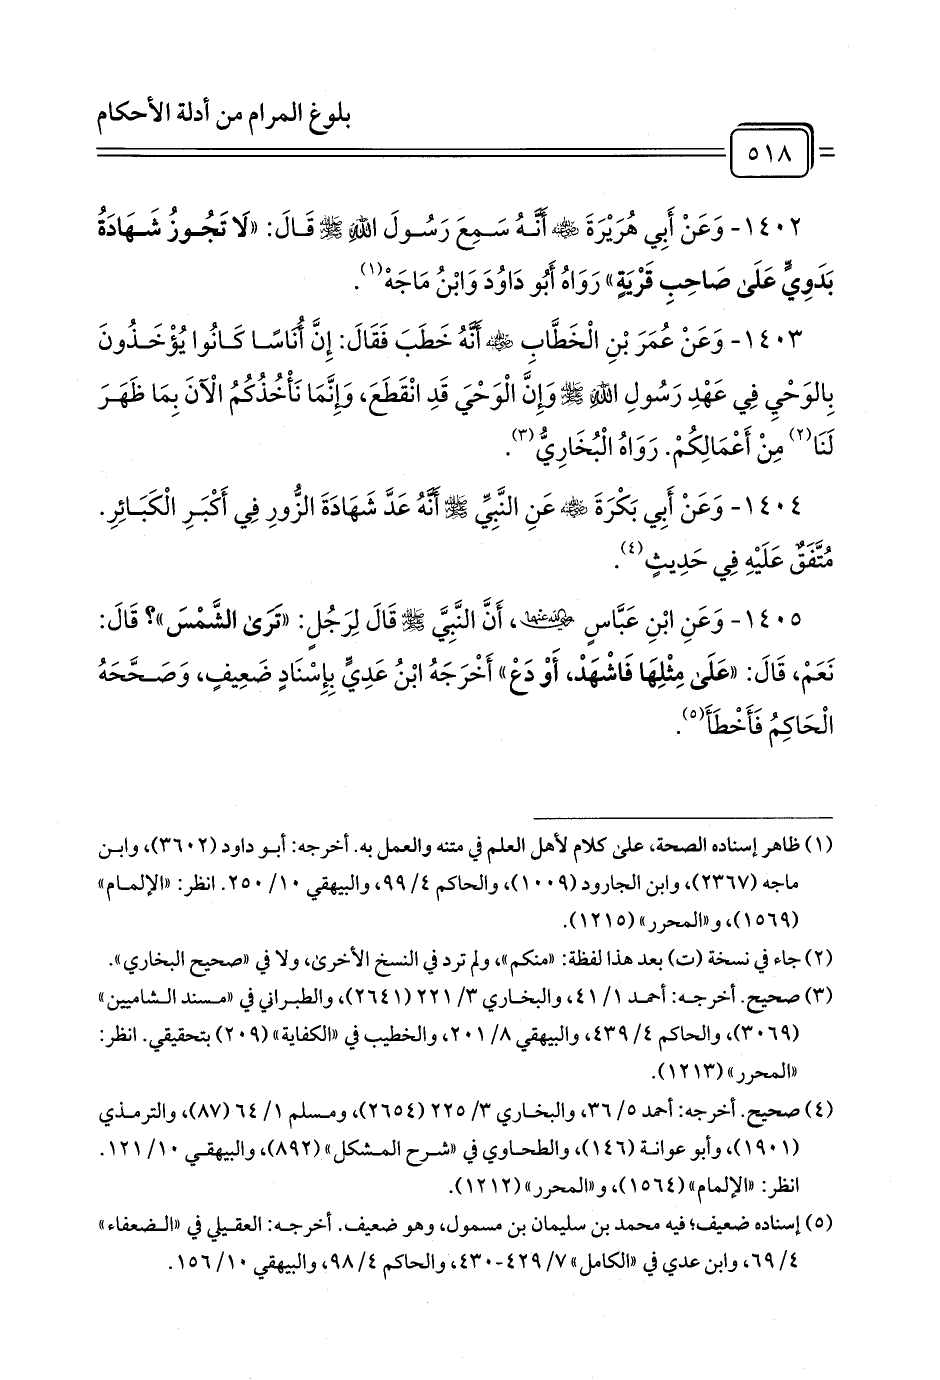 بلوغ المرام من أدلة الأحكام
٥١٨
١٤٠٢- وَعَنْ أَبِي هُرَيْرَةَ ﵁ أَنَّهُ سَمِعَ رَسُولَ اللهِ ﷺ قَالَ: «لَا تَجُوزُ شَهَادَةُ
بَدَوِيٍّ عَلَىٰ صَاحِبِ قَرْيَةٍ» رَوَاهُ أَبُو دَاوُدَ وَابْنُ مَاجَهْ(١).
١٤٠٣- وَعَنْ عُمَرَ بْنِ الْخَطَّابِ ﵁ أَنَّهُ خَطَبَ فَقَالَ: إِنَّ أُنَاسًا كَانُوا يُؤْخَذُونَ
بِالوَحْيِ فِي عَهْدِ رَسُولِ اللهِ ﷺ وَإِنَّ الْوَحْيَ قَدِ انْقَطَعَ، وَإِنَّمَا نَأْخُذُكُمُ الْآنَ بِمَا ظَهَرَ
لَنَا(٢) مِنْ أَعْمَالِكُمْ. رَوَاهُ الْبُخَارِيُّ(٣).
١٤٠٤- وَعَنْ أَبِي بَكْرَةَ ﵁ عَنِ النَّبِيِّ ﷺ أَنَّهُ عَدَّ شَهَادَةَ الزُّورِ فِي أَكْبَرِ الْكَبَائِرِ.
مُتَّفَقٌ عَلَيْهِ فِي حَدِيثٍ(٤).
١٤٠٥- وَعَنِ ابْنِ عَبَّاسٍ ﵄، أَنَّ النَّبِيَّ ﷺ قَالَ لِرَجُلٍ: «تَرَىٰ الشَّمْسَ»؟ قَالَ:
نَعَمْ، قَالَ: «عَلَىٰ مِثْلِهَا فَاشْهَدْ، أَوْ دَعْ» أَخْرَجَهُ ابْنُ عَدِيٍّ بِإِسْنَادٍ ضَعِيفٍ، وَصَحَّحَهُ
الْحَاكِمُ فَأَخْطَأَ(٥).
(١) ظاهر إسناده الصحة، علىٰ كلام لأهل العلم في متنه والعمل به. أخرجه: أبو داود (٣٦٠٢)، وابن
ماجه (٢٣٦٧)، وابن الجارود (١٠٠٩)، والحاكم ٤/ ٩٩، والبيهقي ١٠/ ٢٥٠. انظر: «الإلمام»
(١٥٦٩)، و«المحرر» (١٢١٥).
(٢) جاء في نسخة (ت) بعد هذا لفظة: «منكم»، ولم ترد في النسخ الأخرىٰ، ولا في «صحيح البخاري».
(٣) صحيح. أخرجه: أحمد ١/ ٤١، والبخاري ٣/ ٢٢١ (٢٦٤١)، والطبراني في «مسند الشاميين»
(٣٠٦٩)، والحاكم ٤/ ٤٣٩، والبيهقي ٨/ ٢٠١، والخطيب في «الكفاية» (٢٠٩) بتحقيقي. انظر:
«المحرر» (١٢١٣).
(٤) صحيح. أخرجه: أحمد ٥/ ٣٦، والبخاري ٣/ ٢٢٥ (٢٦٥٤)، ومسلم ١/ ٦٤ (٨٧)، والترمذي
(١٩٠١)، وأبو عوانة (١٤٦)، والطحاوي في «شرح المشكل» (٨٩٢)، والبيهقي ١٠/ ١٢١.
انظر: «الإلمام» (١٥٦٤)، و«المحرر» (١٢١٢).
(٥) إسناده ضعيف؛ فيه محمد بن سليمان بن مسمول، وهو ضعيف. أخرجه: العقيلي في «الضعفاء»
٤/ ٦٩، وابن عدي في «الكامل» ٧/ ٤٢٩-٤٣٠، والحاكم ٤/ ٩٨، والبيهقي ١٠/ ١٥٦.